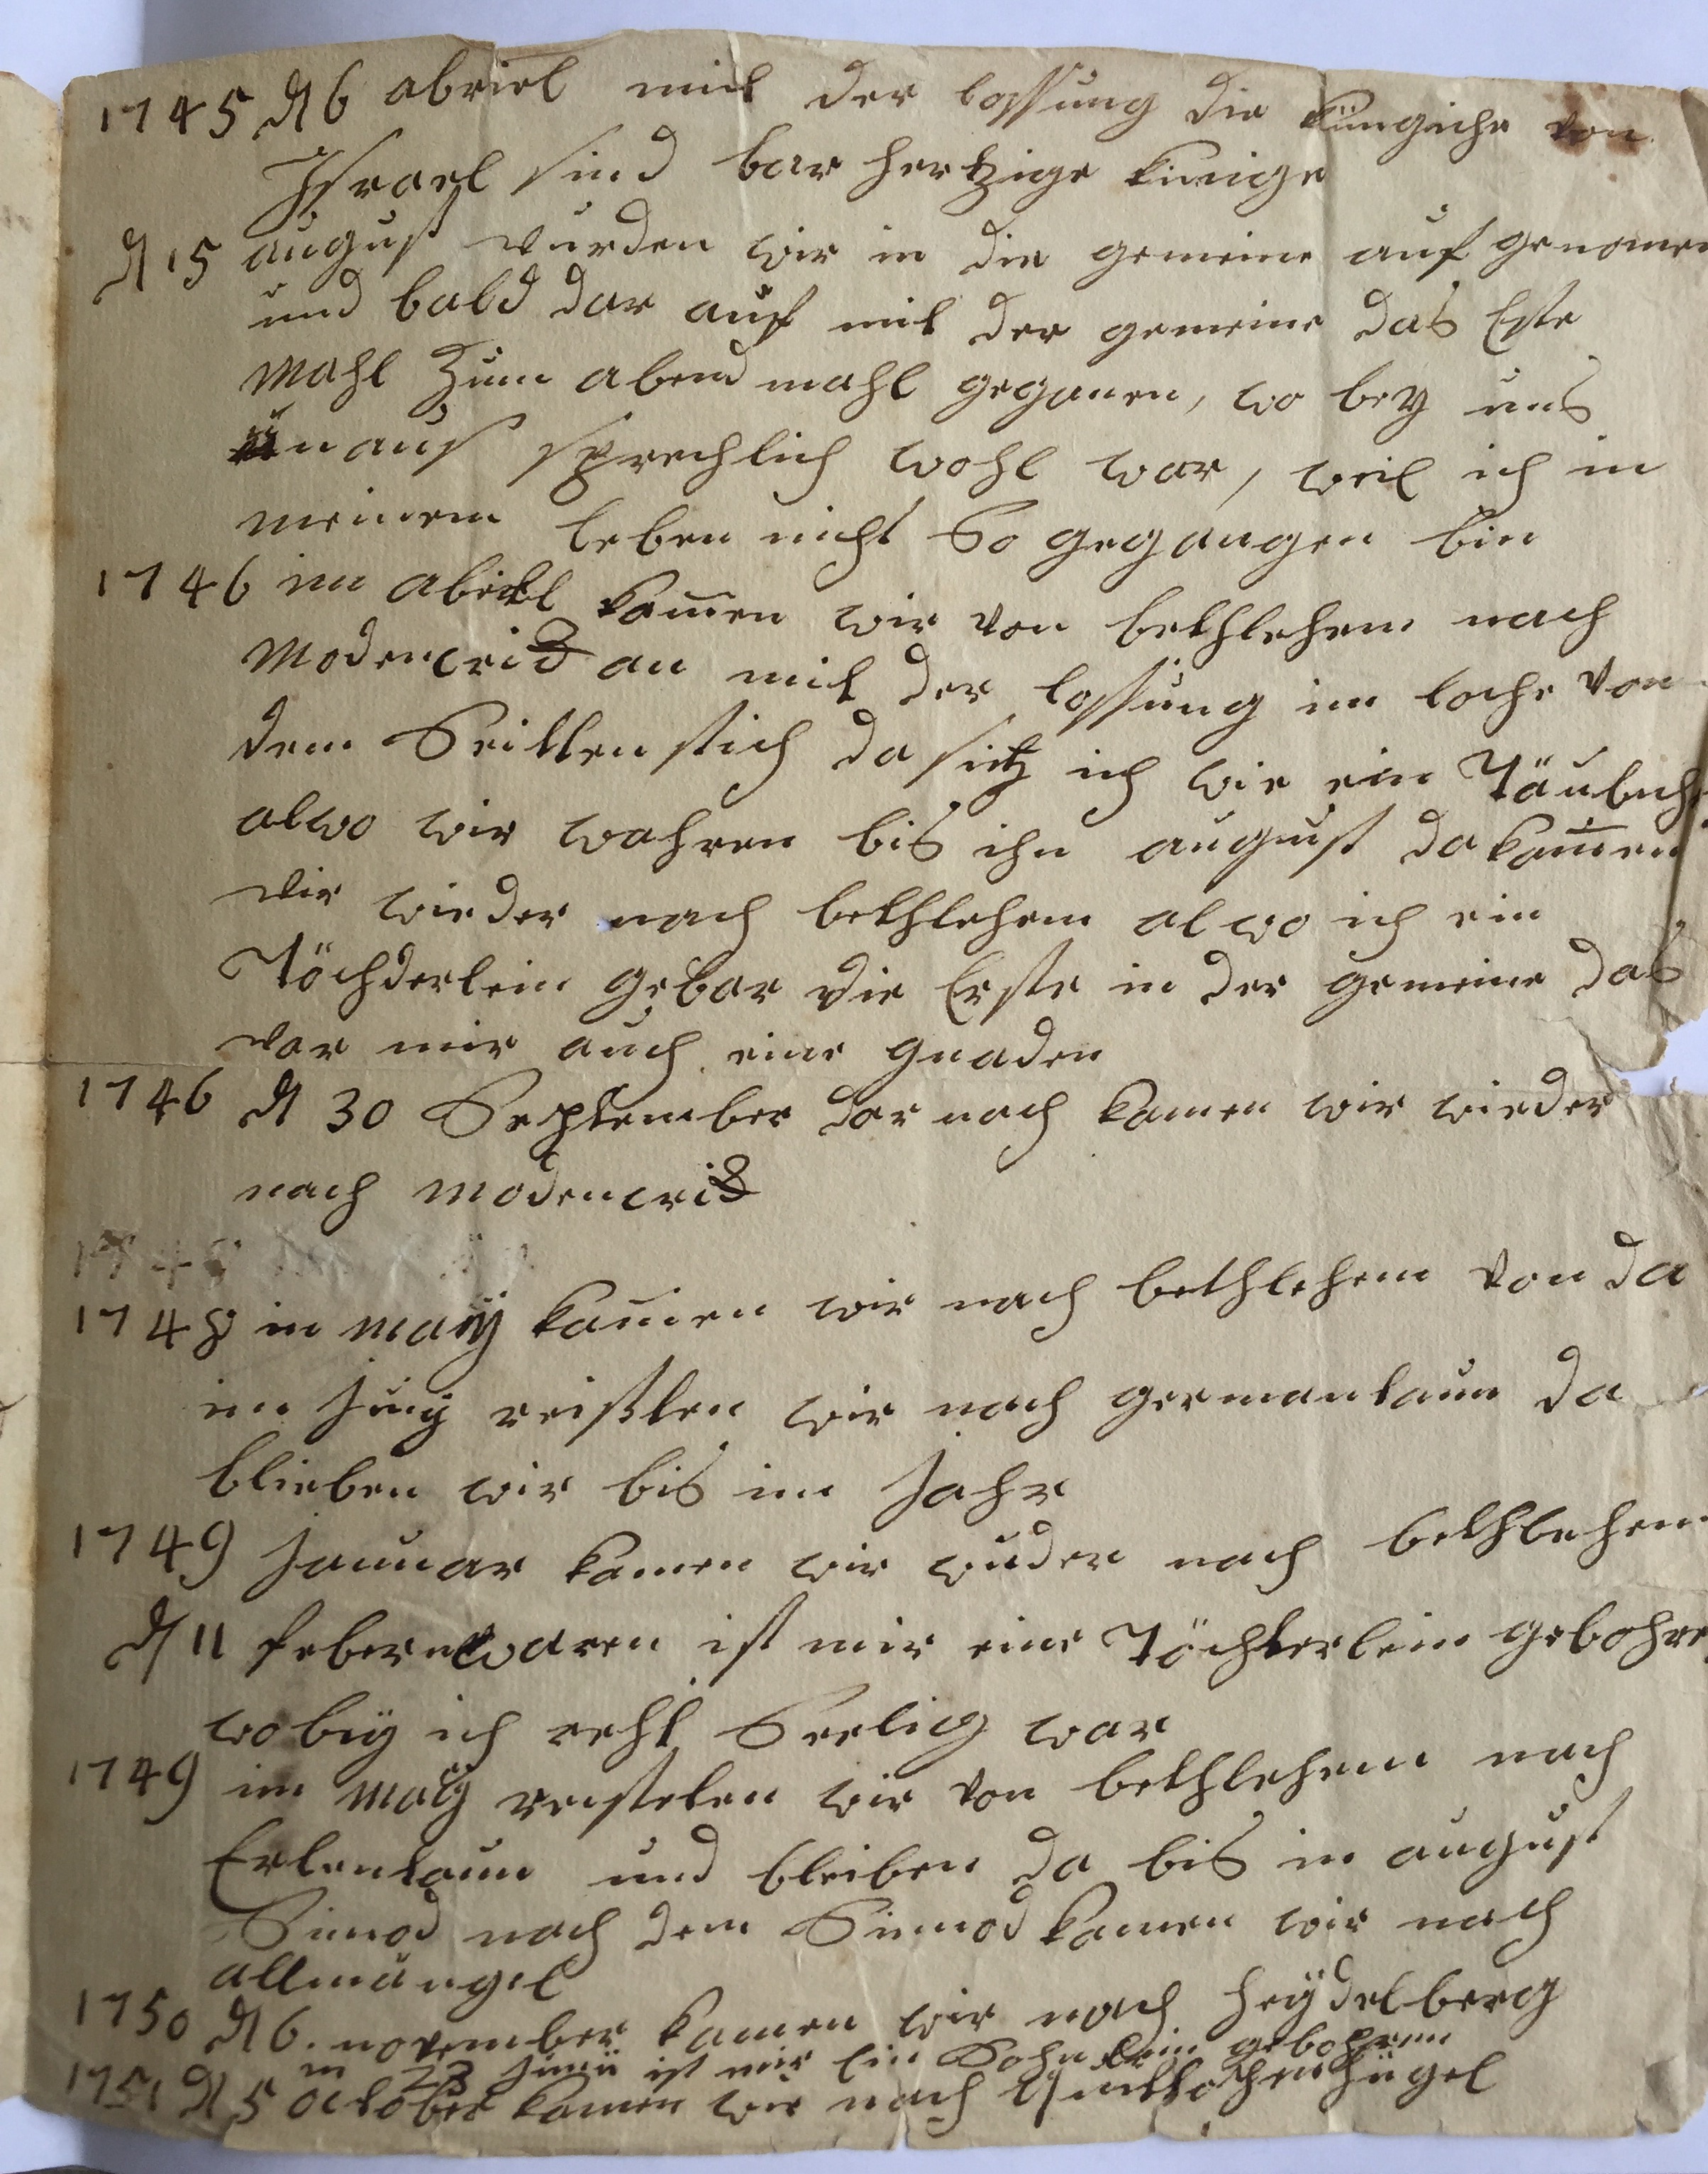 1745 d 6 abriel mit der lossung die küngiche von
Israel sind bar hertzige kinige
d 15 august wurden wir in die gemeine auf genomen
und bald dar auf mit der gemeine das Erste
mahl zum abend mahl gegangen, wo bey uns
unaus sprechlich wohl war, weil ich in
meinem leben nicht So gegangen bin
1746 im abriel kamen wir von bethlehem nach
Modencrick an mit der lossung im loche von
dem Seitten stich da sitz ich wie ein Täubch
alwo wir wahren bis ihn august da kamen
wir wieder nach bethlehem al wo ich ein
Töchderlein gebar die Erste in der gemeine das
war mir auch eine gnaden
1746 d 30 September dar nach kamen wir wieder
nach modencrick
1748 in maÿ kamen wir nach bethlehem von da
im Junÿ reißten wir nach germantaun da
blieben wir bis im Jahr
1749 Januar kamen wir wider nach bethlehem
d 11 feberuwaren ist mir eine Töchterlein gebohre
wo beÿ ich recht Seelig war
1749 im maÿ reisteten wir von bethlehem nach
Erlentaun und bleiben da bis in august
Sinnod nach dem Sinnod kamen wir nach
allmängel
1750 d 6. november kamen wir nach Heÿdelberg
in 23 Junü ist mir Ein Sohnlein gebohren
1751 d 5 october kamen wir nach